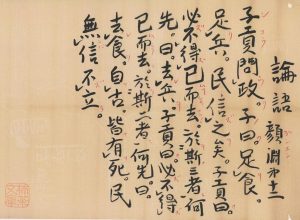 論語 顔淵第十二
子貢問政。子曰。足食。
足兵。民信之矣。子貢曰
必不得已而去。於斯三者何
先。曰。去兵。子貢曰。必不得
已而去。於斯二者何先。曰。
去食。自古皆有死。民
無信不立。